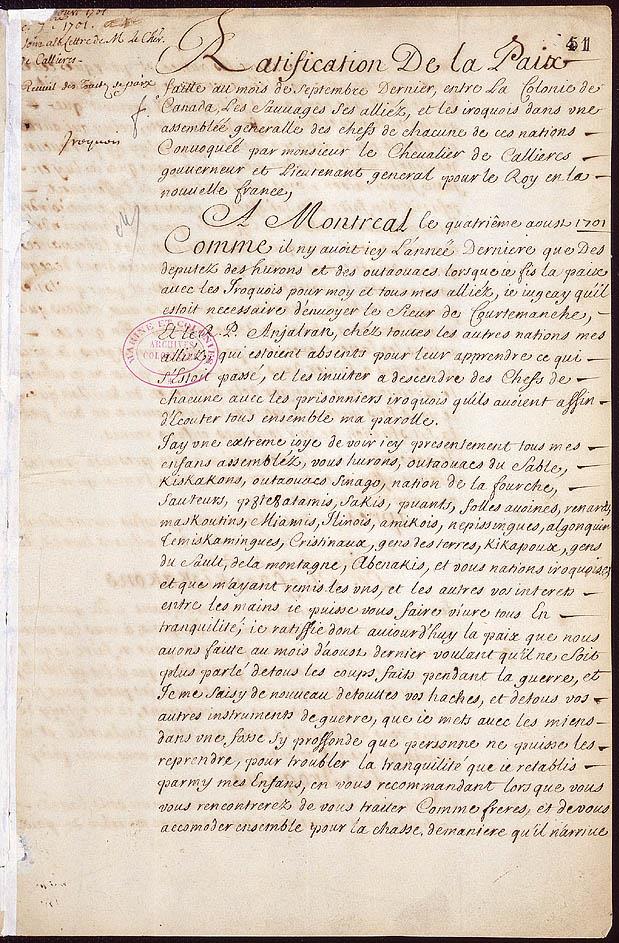 7. 1701.
Lettre de M. le Cher.
de Callieres
51
Iroquois
Ratification De la Paix
faitte au mois de Septembre Dernier, entre La Colonie de
Canada, Les Sauvages Ses alliéz, et les iroquois dans vne
assemblée generalle des chefs de chacune de ces nations
Convoquée par monsieur le Chevalier de Callieres
gouuerneur et Lieutenant general pour le Roy en la
nouuelle france,
A Montreal le quatriême aoust 1701
Comme il ny auoit icy L'anneé Derniere que Des
deputez des hurons et des outaouacs lorsque ie fis la paix
auec les Iroquois pour moy et tous mes alliéz, ie iugeay qu'il
estoit necessaire d'enuoyer le Sieur de Courtemanche,
et le R. P. Anjalran, chéz toutes les autres nations mes
alliéz, qui estoient absents pour leur apprendre ce qui
s'estoit passé, et les inuiter a descendre des Chefs de
chacune auec les prisonniers iroquois quils auoient affin
d'Ecouter tous ensemble ma parolle.
MARINE ET COLONIES
ARCHIVES
COLONIALES
J'ay vne extreme ioye de voir icy presentement tous mes
enfans assembléz, vous hurons, outaouacs du Sable,
Kiskakons, outaouacs Sinago, nation de la fourche,
Sauteurs, p8te8atamis, Sakis, puants, folles auoines, renards,
maskoutins, Miamis, Ilinois, amikois, nepissingues, algonquins
Temiskamingues, Cristinaux, gens des terres, Kikapoux, gens
du Sault, de la montagne, Abenakis, et vous nations iroquoises
et que m'ayant remis les vns, et les autres vos interets
entre les mains ie puisse vous faire viure tous En
tranquilité; ie ratiffie dont aujourd'huy la paix que nous
auons faitte au mois d'aoust dernier voulant qu'il ne Soit
plus parlé de tous les coups faits pendant la guerre, et
Ie me Saisy de nouueau de touttes vos haches, et de tous vos
autres instruments de guerre, que ie mets auec les miens
dans vne fosse Sy proffonde que personne ne puisse les
reprendre, pour troubler la tranquilité que ie retablis
parmy mes Enfans, en vous recommandant lors que vous
vous rencontrerez de vous traiter Comme freres, et de vous
accomoder ensemble pour la chasse, de maniere qu'il n'arriue